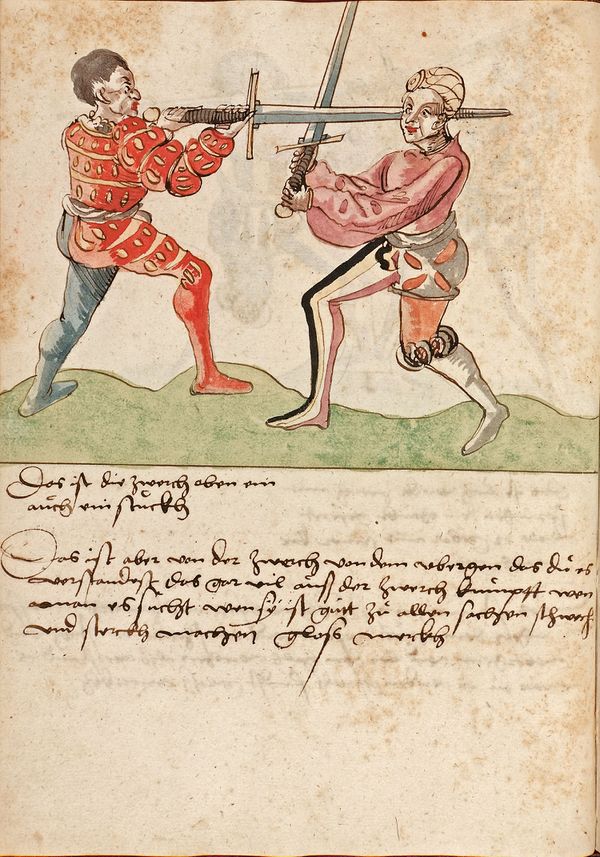 Das ist die zwerch oben ein
auch ein stuckh
Das ist aber von der zwerch von dem ubergen das du es
verstandest das gar vil auss der zwerch kumptt wen
man es sucht wen sy ist gutt zu allen sachen schwech
und sterckh machen gloss merckh